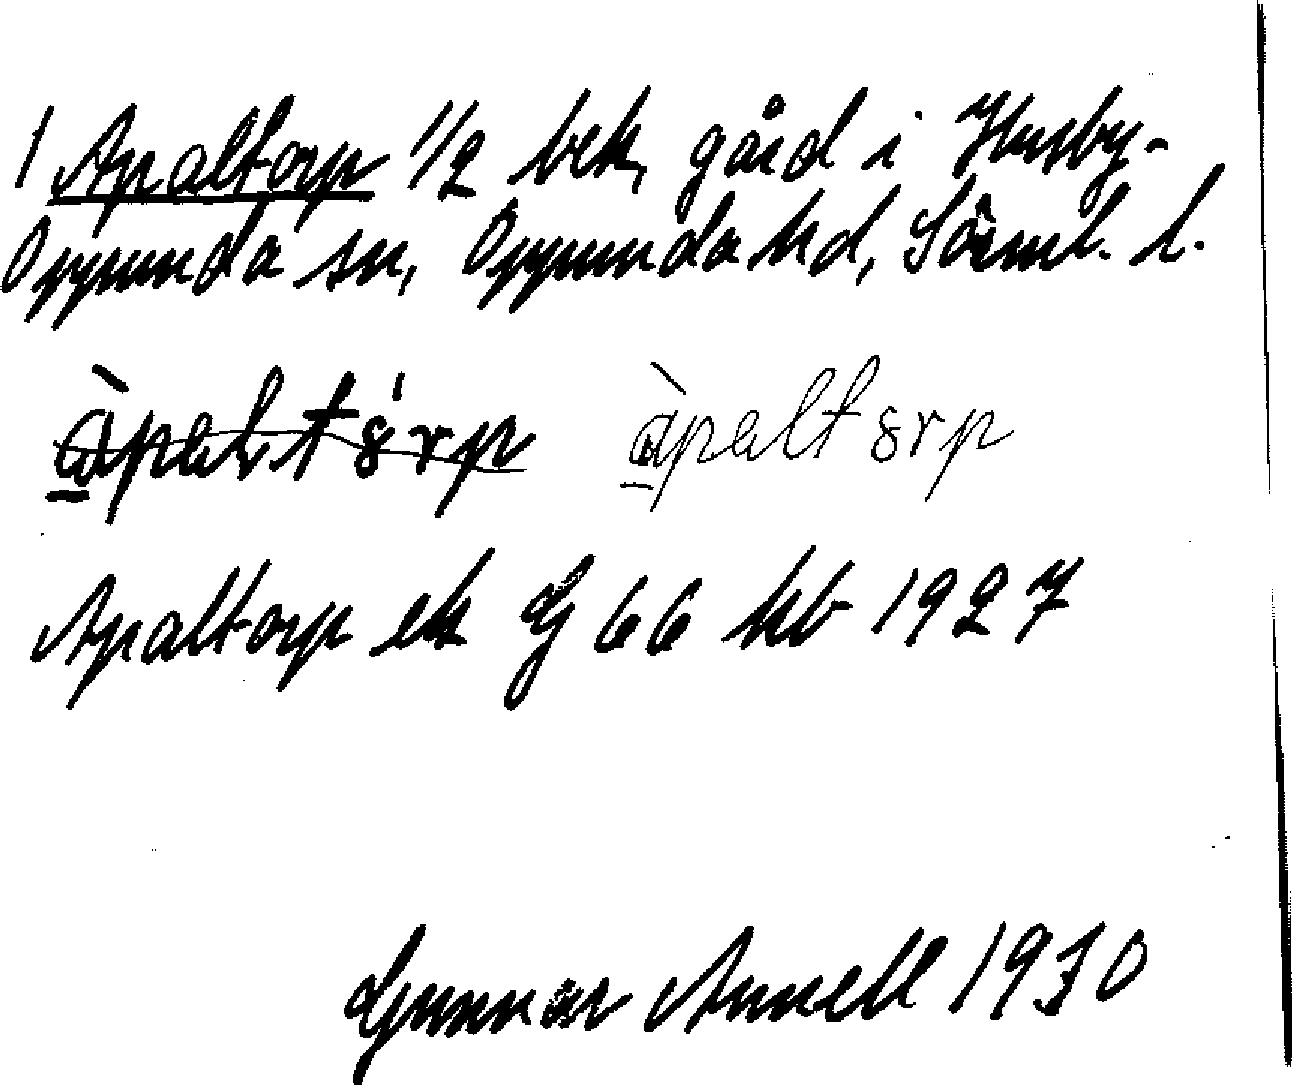 1 Apaltorp 1/2 bek, gård i Husby-
Oppunda sn, Oppunda hd, Sörml. l.
àpaltȣrp
Apaltorp ek G 66 kb 1927
Gunnar Annell 1930